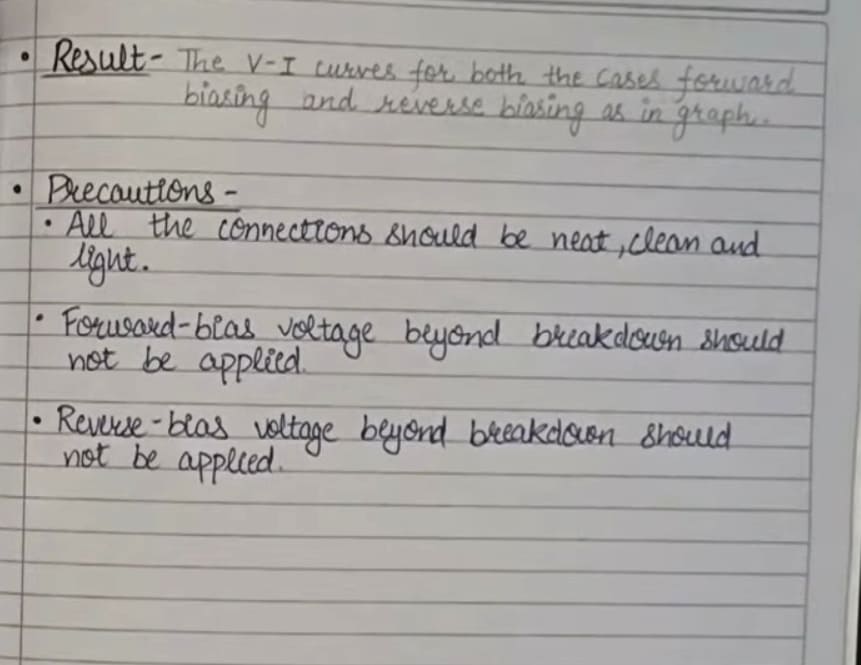 • Result - The V-I curves for both the cases forward
biasing and reverse biasing as in graph.
• Precautions -
• All the connections should be neat, clean and
light.
• Forward-bias voltage beyond breakdown should
not be applied.
• Reverse-bias voltage beyond breakdown should
not be applied.